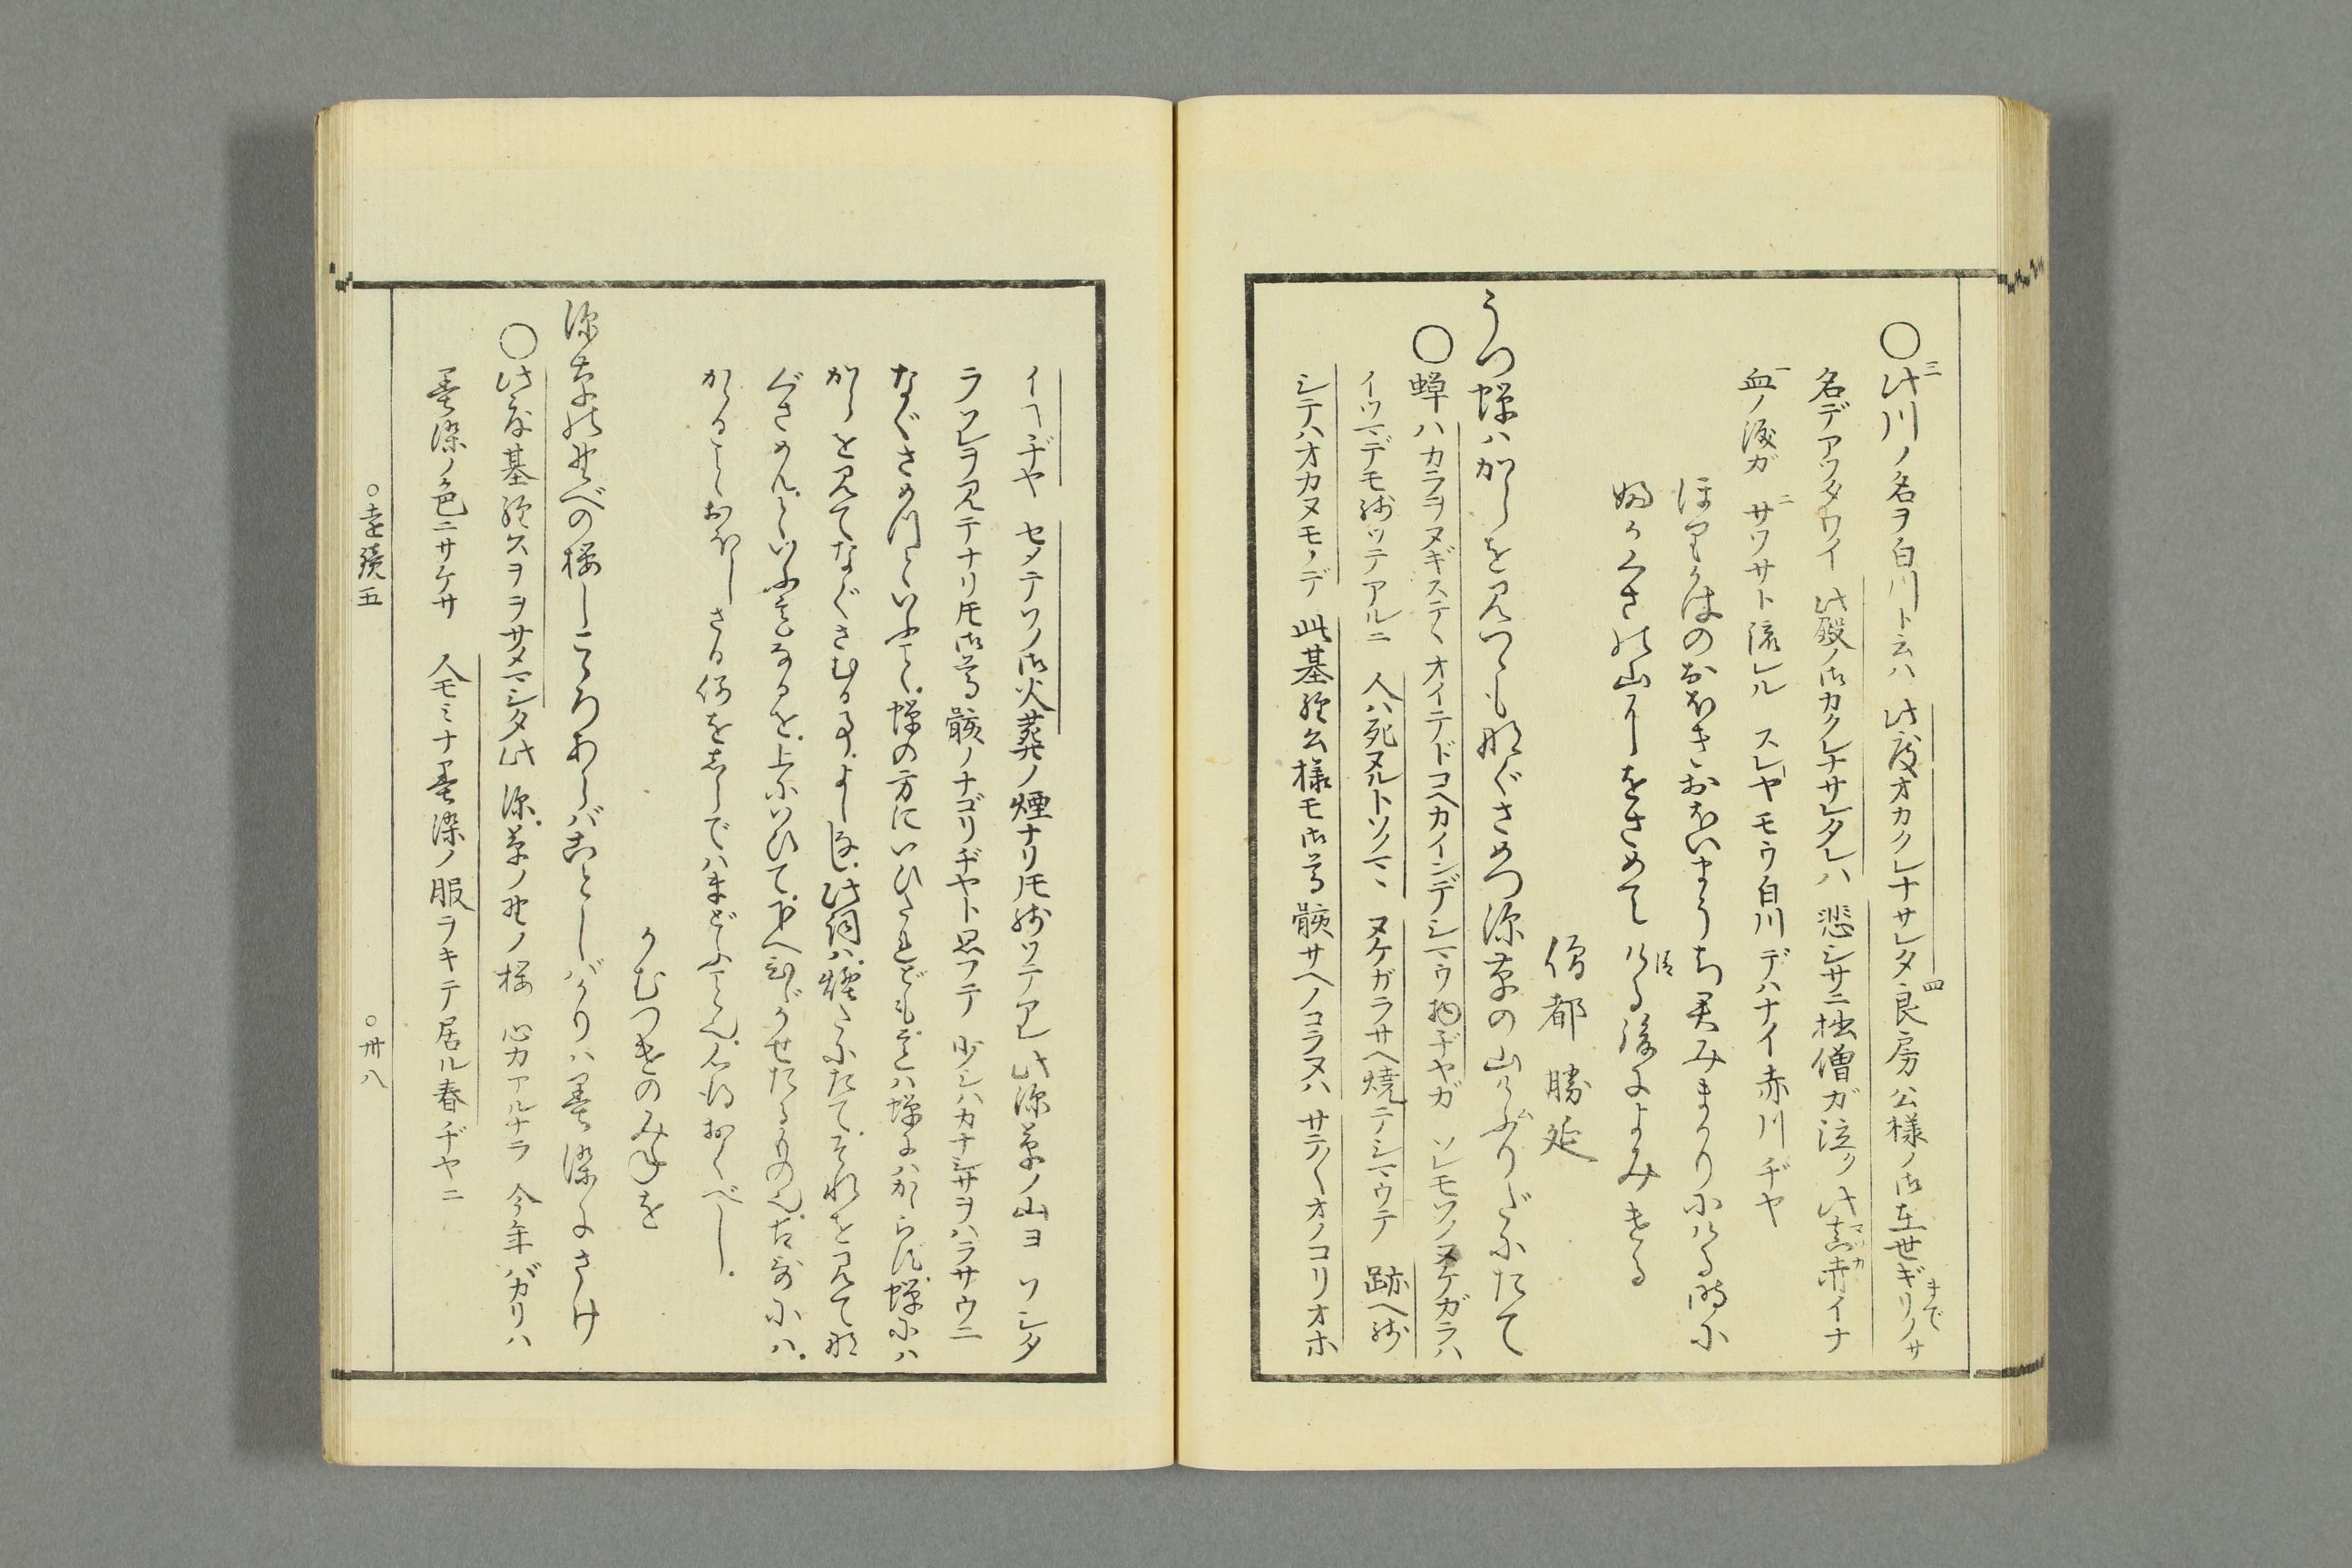 ○此川ノ名ヲ白川ト云ハ 此度オカクレナサレタ良房公様ノ御在世ギリノサ
三
四
まで
名デアツタワイ 此殿ノ御カクレナサレタレハ 悲シサニ拙僧ガ泣ク此真赤イナ
マツカ
血ノ涙ガ サツサト流レル スレヤモウ白川デハナイ赤川ヂヤ
一
二
ほりかはのおほきおほいまうち君みまかりにける時に
ふかくさの山にをさめてける後によみける
僧都 勝延
うつ蝉はからを見つゝもなぐさめつ深草の山けふりだにたて
○蝉ハカラヲヌギステヽオイテドコヘカインデシマウ物ヂヤガ ソレモソノヌケガラハ
イツマデモ残ツテアルニ 人ハ死ヌルトソノマヽ ヌケガラサヘ焼テシマウテ 跡ヘ残
シテハオカヌモノデ 此基経公様モ御尊骸サヘノコラヌハ サテ〳〵オノコリオホ
イヿヂヤ セメテソノ御火葬ノ煙ナリ𪜈残ツテアレ此深草ノ山ヨ ソシタ
ラソレヲ見テナリ𪜈御尊骸ノナゴリヂヤト思フテ 少シハカナシサヲハラサウニ
なぐさめつといふこと、蝉の方にいひたれども、そは蝉にはからず、蝉には
からを見てなぐさむる事、よしなし、此詞は、煙だにたて、それを見てな
ぐさめんといふ意なるを、上にいひて、下へひゞかせたるもの也、古歌には、
かゝることおほし、さる例をしらでは、まどふこと也、心得おくべし、
かむつけのみねを
深草の野べの桜し心あらばことしばかりは墨染にさけ
○此度基経公ヲヲサメマシタ此 深草ノ野ノ桜 心カアルナラ 今年バカリハ
墨染ノ色ニサケサ 人モミナ墨染ノ服ヲキテ居ル春ヂヤニ
○遠鏡五
○卅八